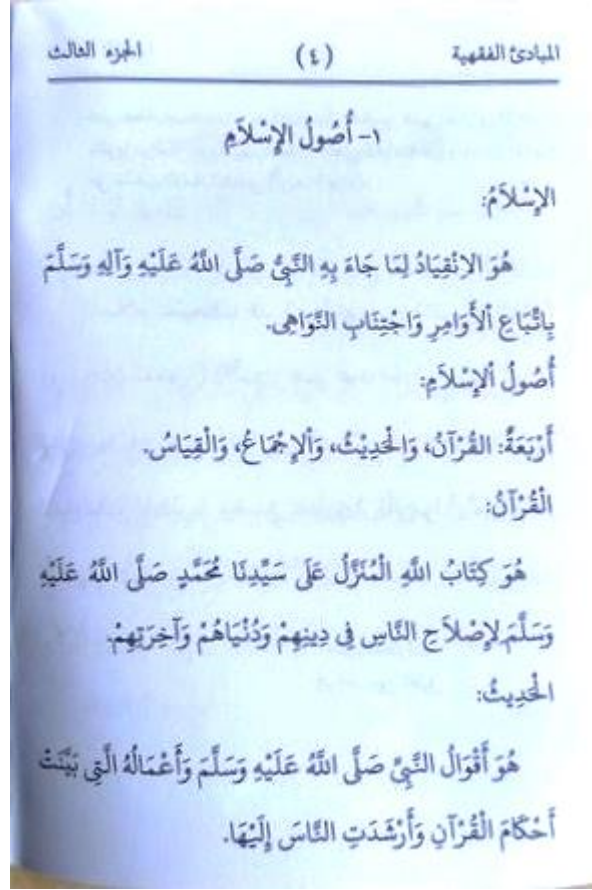 المبادئ الفقهية (٤) الجزء الثالث
١- أُصُولُ الإِسْلاَمِ
الإِسْلاَمُ:
هُوَ الاِنْقِيَادُ لِمَا جَاءَ بِهِ النَّبِيُّ صَلَّى اللَّهُ عَلَيْهِ وَآلِهِ وَسَلَّمَ
بِاتِّبَاعِ اْلأَوَامِرِ وَاجْتِنَابِ النَّوَاهِى.
أُصُولُ اْلإِسْلاَمِ:
أَرْبَعَةٌ: القُرْآنُ، وَالْحَدِيْثُ، وَاْلإِجْمَاعُ، وَالْقِيَاسُ.
الْقُرْآنُ:
هُوَ كِتَابُ اللَّهِ الْمُنَزَّلُ عَلَى سَيِّدِنَا مُحَمَّدٍ صَلَّى اللَّهُ عَلَيْهِ
وَسَلَّمَ لِإِصْلاَحِ النَّاسِ فِى دِينِهِمْ وَدُنْيَاهُمْ وَآخِرَتِهِمْ.
الْحَدِيثُ:
هُوَ أَقْوَالُ النَّبِيِّ صَلَّى اللَّهُ عَلَيْهِ وَسَلَّمَ وَأَعْمَالُهُ الَّتِى بَيَّنَتْ
أَحْكَامَ الْقُرْآنِ وَأَرْشَدَتِ النَّاسَ إِلَيْهَا.